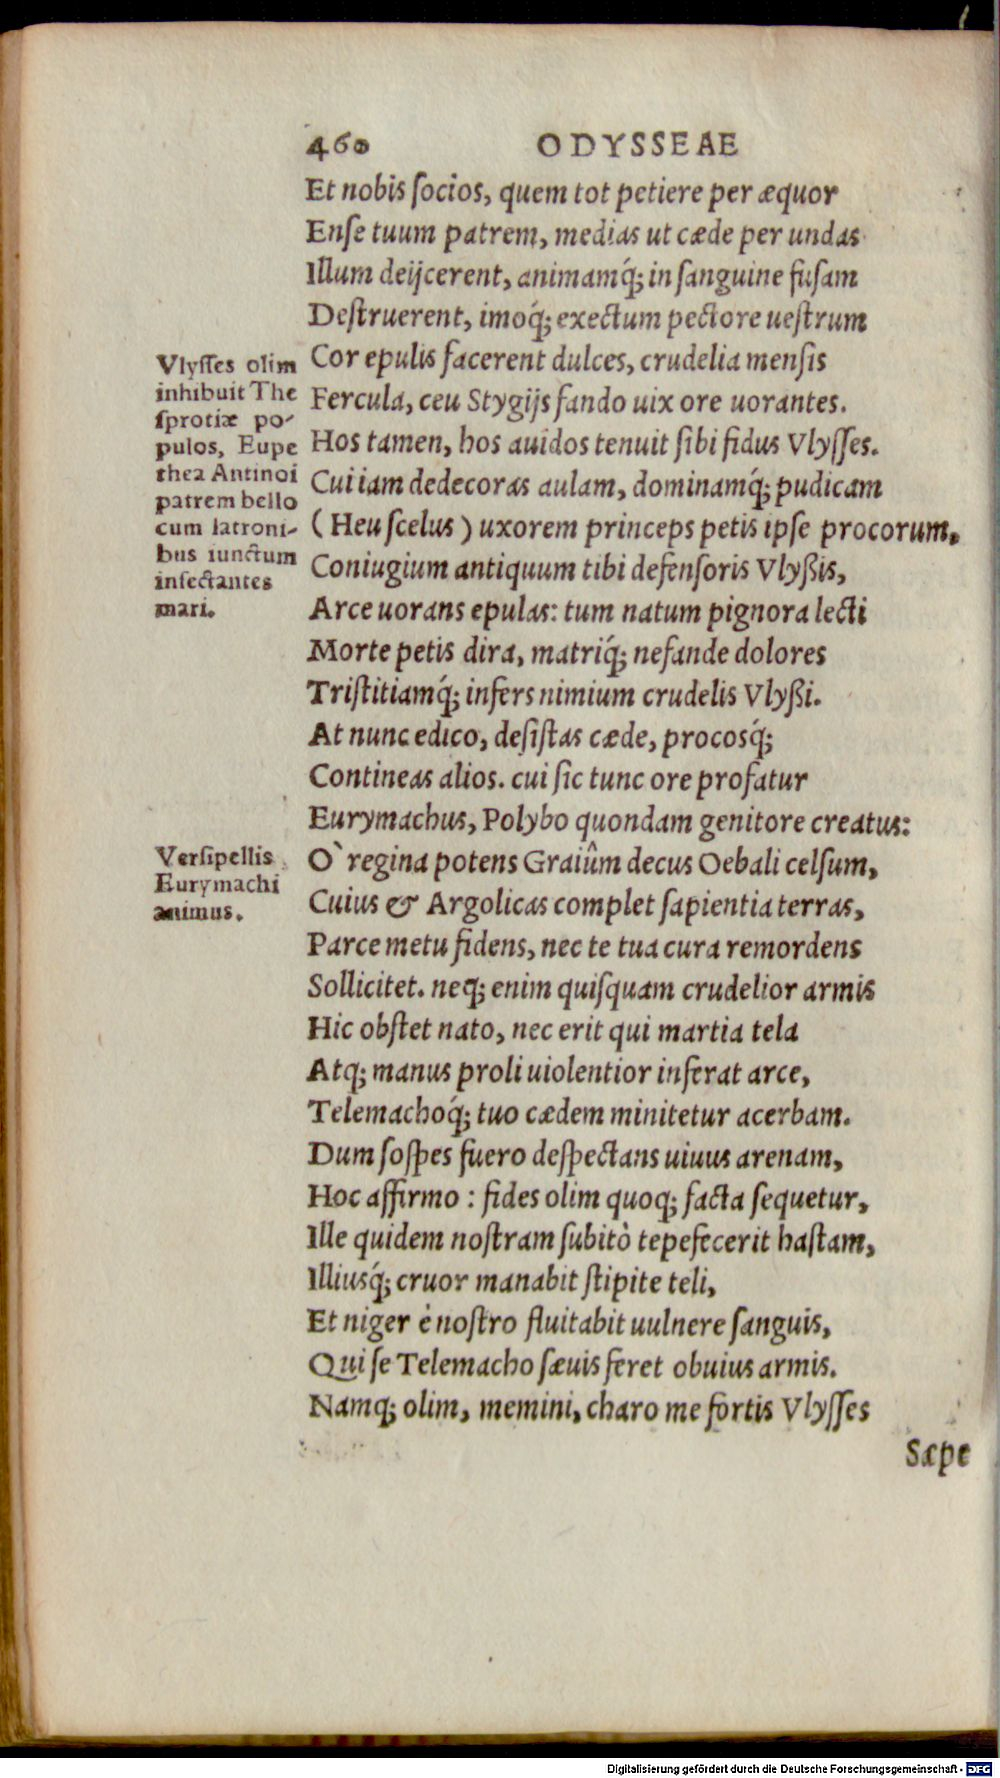 460 ODYSSEAE
Et nobis ſocios, quem tot petiere per æquor
Enſe tuum patrem, medias ut cæde per undas
Illum deijcerent, animamq́; in ſanguine fuſam
Deſtruerent, imoq́; exectum pectore ueſtrum
Cor epulis facerent dulces, crudelia menſis
Fercula, ceu Stygijs fando uix ore uorantes.
Hos tamen, hos auidos tenuit ſibi fidus Vlyſſes.
Cui iam dedecoras aulam, dominamq́; pudicam
(Heu ſcelus) uxorem princeps petis ipſe procorum,
Coniugium antiquum tibi defenſoris Vlyßis,
Arce uorans epulas: tum natum pignora lecti
Morte petis dira, matriq́; nefande dolores
Triſtitiamq́; infers nimium crudelis Vlyßi.
At nunc edico, deſiſtas cæde, procosq́;
Contineas alios. cui ſic tunc ore profatur
Eurymachus, Polybo quondam genitore creatus:
O` regina potens Graiûm decus Oebali celſum,
Cuius & Argolicas complet ſapientia terras,
Parce metu fidens, nec te tua cura remordens
Sollicitet. neq; enim quiſquam crudelior armis
Hic obſtet nato, nec erit qui martia tela
Atq; manus proli uiolentior inferat arce,
Telemachoq́; tuo cædem minitetur acerbam.
Dum ſoſpes fuero deſpectans uiuus arenam,
Hoc affirmo : fides olim quoq; facta ſequetur,
Ille quidem noſtram ſubitò tepefecerit haſtam,
Illiusq́; cruor manabit ſtipite teli,
Et niger è noſtro fluitabit uulnere ſanguis,
Qui ſe Telemacho ſæuis feret obuius armis.
Namq; olim, memini, charo me fortis Vlyſſes
Sæpe
Vlyſſes olim
inhibuit The
ſprotiæ po-
pulos, Eupe
thea Antinoi
patrem bello
cum latroni-
bus iunctum
inſectantes
mari.
Verſipellis
Eurymachi
animus.
Digitalisierung gefördert durch die Deutsche Forschungsgemeinschaft - DFG